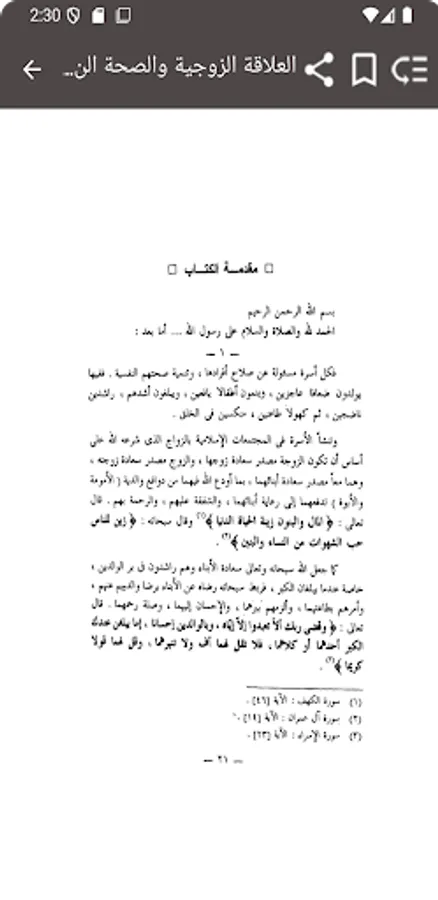 2:30
العلاقة الزوجية والصحة الن...
□ مقدمــة الكتــاب □
بسم الله الرحمن الرحيم
الحمد لله والصلاة والسلام على رسول الله .... أما بعد :
— ١ —
فكل أسرة مسئولة عن صلاح أفرادها ، وتنمية صحتهم النفسية . ففيها
يولدون ضعافا عاجزين ، وينمون أطفالا يافعين ، ويبلغون أشدهم ، راشدين
ناضجين ، ثم كهولا طاعنين ، منكسين في الخلق .
وتنشأ الأسرة في المجتمعات الإسلامية بالزواج الذى شرعه الله على
أساس أن تكون الزوجة مصدر سعادة زوجها ، والزوج مصدر سعادة زوجته ،
وهما معاً مصدر سعادة أبنائهما ، بما أودع الله فيهما من دوافع والدية ( الأمومة
والأبوة ) تدفعهما إلى رعاية أبنائهما ، والشفقة عليهم ، والرحمة بهم . قال
تعالى : ﴿ المال والبنون زينة الحياة الدنيا ﴾(١) وقال سبحانه : ﴿ زين للناس
حب الشهوات من النساء والبنين ﴾(٢) .
كما جعل الله سبحانه وتعالى سعادة الأبناء وهم راشدون فى بر الوالدين ،
خاصة عندما يبلغان الكبر ، فربط سبحانه رضاه عن الأبناء برضا والديهم عنهم ،
وأمرهم بطاعتهما ، وألزمهم ببرهما ، والإحسان إليهما ، وصلة رحمهما . قال
تعالى : ﴿ وقضى ربك ألا تعبدوا إلا إياه ، وبالوالدين إحسانا ، إما يبلغن عندك
الكبر أحدهما أو كلاهما ، فلا تقل لهما أف ولا تنهرهما ، وقل لهما قولا
كريما ﴾(٣) .
(١) سورة الكهف : الآية [٤٦] .
(٢) سورة آل عمران : الآية [١٤] .
(٣) سورة الإسراء : الآية [٢٣] .
— ٢١ —